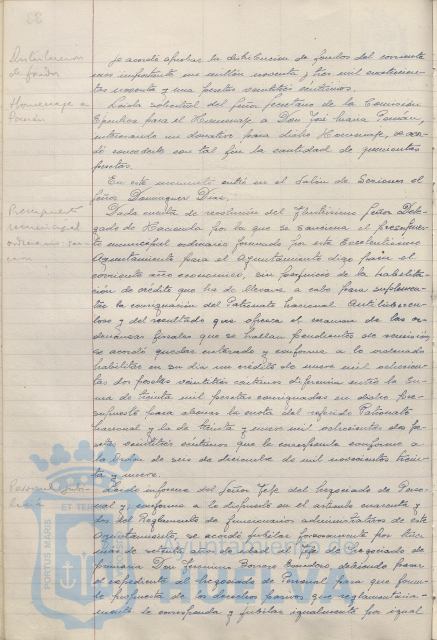 Distribución
de fondos
Se acordó aprobar la distribución de fondos del corriente
mes importante un millón noventa y tres mil
noventa y una pesetas veintitrés céntimos.
Homenaje a
Pemán
Leída solicitud del Señor Secretario de la Comisión
Ejecutiva para el Homenaje a Don José María Pemán,
interesando un donativo para dicho Homenaje, se acor-
dó concederle con tal fin la cantidad de quinientas
pesetas.
En este momento entró en el Salón de Sesiones el
Señor Domínguez Díaz.
Presupuesto
municipal
ordinario
Dada cuenta de resolución del Ilustrísimo Señor Dele-
gado de Hacienda por la que se sanciona el presupues-
to municipal ordinario formado por este Excelentísimo
Ayuntamiento para el Ayuntamiento digo para el
corriente año económico, sin perjuicio de la habilita-
ción de crédito que ha de llevarse a cabo para suplemen-
tar la consignación del Patronato Nacional Antitubercu-
loso y del resultado que ofrezca el examen de las or-
denanzas fiscales que se hallan pendientes de remisión,
se acordó quedar enterado y conforme a lo ordenado
habilitar en su día un crédito de nueve mil ochocien-
tas dos pesetas veintitrés céntimos diferencia entre la su-
ma de treinta mil pesetas consignadas en dicho Pre-
supuesto para abonar la cuota del referido Patronato
Nacional y la de treinta y nueve mil ochocientas dos pe-
setas veintitrés céntimos que le corresponde conforme a
la Orden de seis de diciembre de mil novecientos trein-
ta y nueve.
Personal
Leído informe del Señor Jefe del Negociado de Perso-
nal y conforme a lo dispuesto en el artículo cuarenta y
dos del Reglamento de funcionarios administrativos de este
Ayuntamiento, se acordó jubilar forzosamente por
más de setenta años de edad al Jefe de Negociado de
primera Don Jerónimo Borrego debiendo pasar
el expediente al Negociado de Personal para que formu-
le propuesta de los derechos pasivos que reglamentaria-
mente le corresponda y jubilar igualmente por igual
PORTUS MARIS
ET TERRAE
Ayuntamiento de